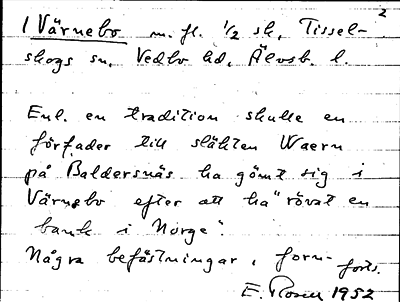 2
/ Värnebo m. fl. 1/2 sk, Tissel-
skogs sn, Vedbo hd, Älvsb. l.
Enl. en tradition skulle en
förfader till släkten Waern
på Baldersnäs ha gömt sig i
Värnebo efter att ha "rövat en
bank i Norge".
Några befästningar, forn- forts.
E. Rosen 1952